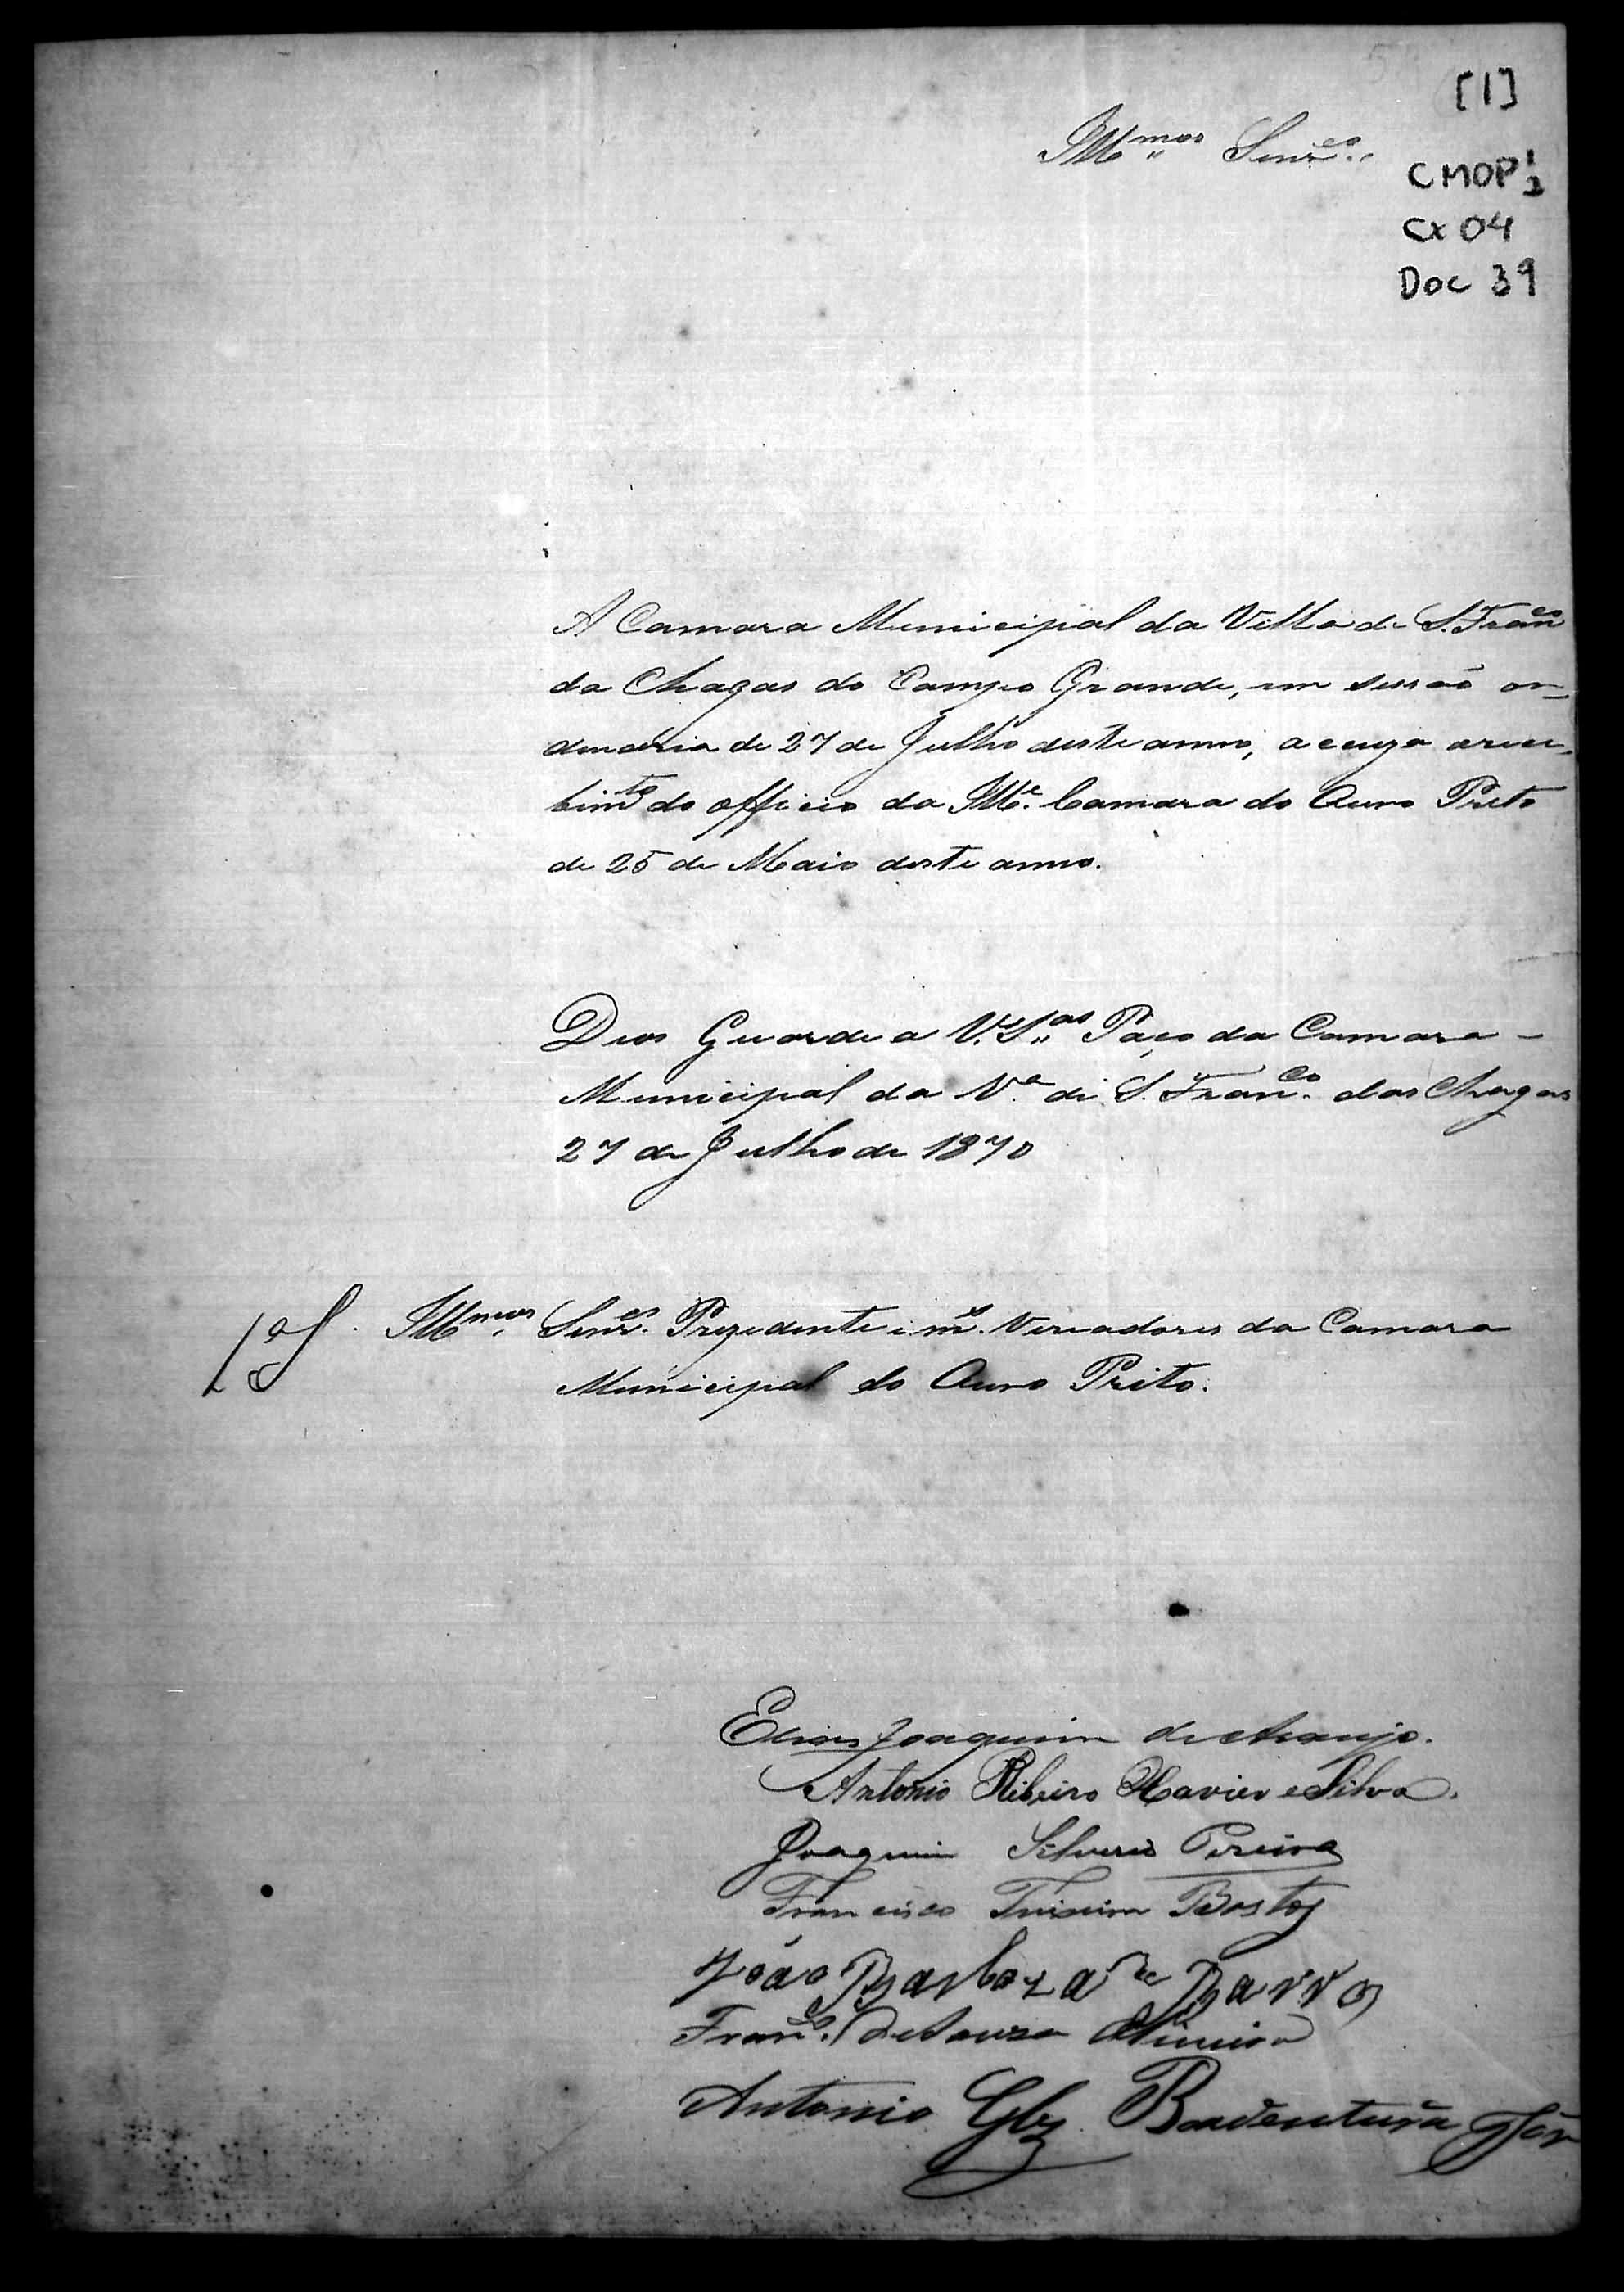 [1]
Illmos Senres
CMOP
Cx 04
Doc 39
A Camara Municipal da Villa de S. Franco
da Chagas do Campo Grande, em sessão or-
denaria de 27 de Julho deste anno, accuza o rece-
bimto do officio da Illa. Camara do Ouro Preto
de 25 de Maio deste anno.
Deos Guarde a V. Sas Paço da Camara -
Municipal da Va. de S. Franco. das Chagas
27 de Julho de 1870
Illmos Senres. Prezedente e ms. Vereadores da Camara
Municipal do Ouro Preto.
Elias Joaquim de Araujo.
Antonio Ribeiro Xavier e Silva.
Joaquim Silverio Pereira
Francisco Teixeira Bastos
João Barboza de Barros
Franco. de Souza
Antonio Glz Boaventura